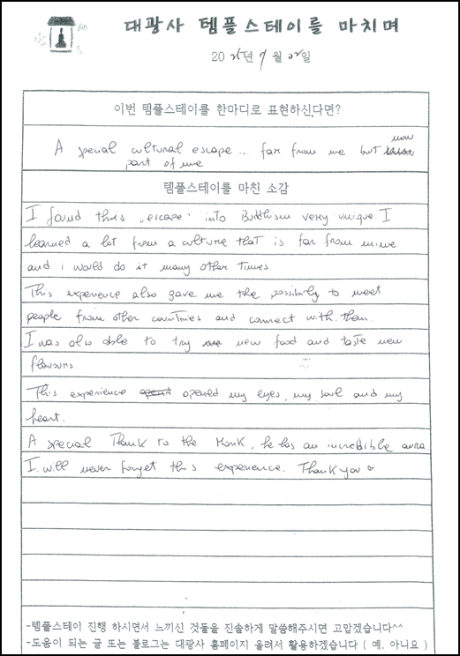 대광사 템플스테이를 마치며
20 년 월 일
이번 템플스테이를 한마디로 표현하신다면?
A special cultural escape... far from me but now
part of me
템플스테이를 마친 소감
I found this "escape" into Buddhism very unique. I
learned a lot from a culture that is far from mine
and i would do it many other times
This experience also gave me the possibility to meet
people from other countries and connect with them.
I was also able to try new food and taste new
flavours.
This experience opened my eyes, my soul and my
heart.
A special Thank to the Monk, he has an incredible aura
I will never forget this experience. Thank you
-템플스테이 진행 하시면서 느끼신 것들을 진솔하게 말씀해주시면 고맙겠습니다^^
-도움이 되는 글 또는 블로그는 대광사 홈페이지 올려서 활용하겠습니다 ( 예. 아니요 )